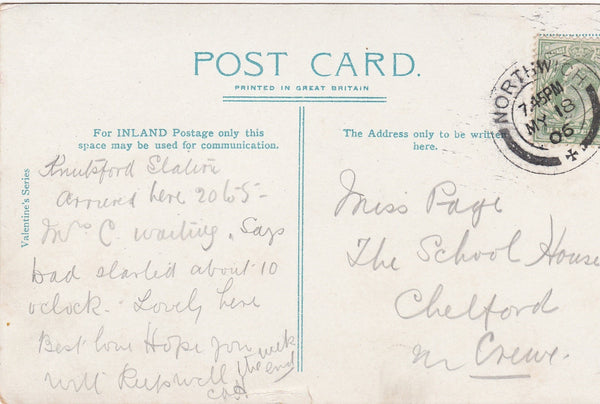 POST CARD.
PRINTED IN GREAT BRITAIN
For INLAND Postage only this
space may be used for communication.
The Address only to be written
here.
Valentine's Series
NORTHWICH
7.45PM
MY 18
06
Knutsford Station
Arrived here 20 to 5 -
Mrs C. waiting. Says
Dad started about 10
oclock. Lovely here
Best love Hope you
will keep well the week end
Miss Page
The School House
Chelford
nr Crewe.